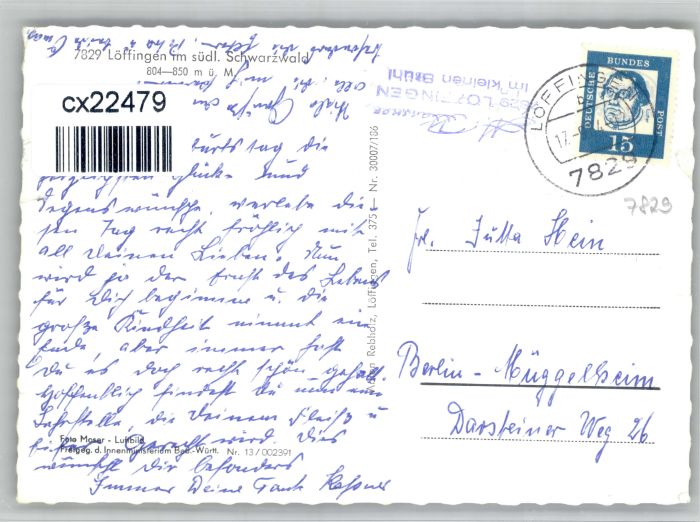 7829 Löffingen im südl. Schwarzwald
804—850 m ü. M.
cx22479
burtstag die
Glücks und
Segenswünsche, verlebe die-
sen Tag recht fröhlich mit
all Deinen Lieben. Nun
wird ja der Ernst des Lebens
für Dich beginnen u. die
große Kindheit nimmt ein
Ende, aber immer hast
Du es doch recht schön gehabt.
Hoffentlich findest Du nun eine
Lehrstelle, die Deinem Fleiß u
gerecht wird. Dies
wünscht Dir besonders
Immer Deine Tante
Foto Moser - Luftbild
Freigeg. d. Innenministerium Bad.-Württ. Nr. 13/002391
Löffingen, Tel. 375 — Nr. 30007/186
7829 LÖFFINGEN
Im kleinen Brühl
LÖFFINGEN
17.
7829
DEUTSCHE BUNDES POST
15
7829
Frl. Jutta Hein
Berlin - Müggelheim
Darsteiner Weg 26